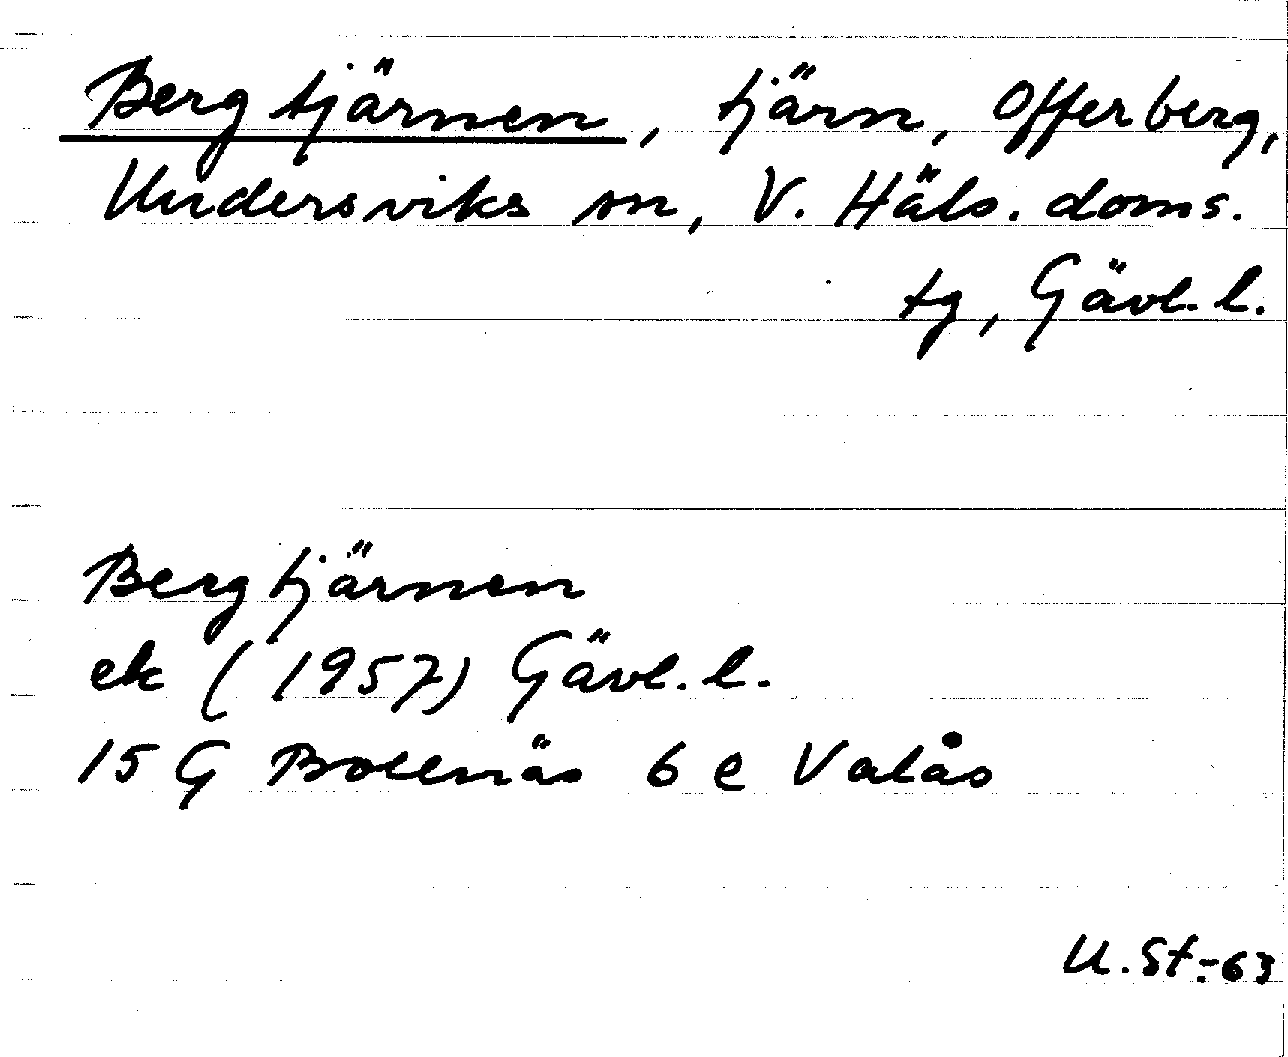 Bergtjärnen, tjärn, Offerberg,
Undersviks sn, V. Häls. doms.
tg, Gävl. l.
Bergtjärnen
ek (1957) Gävl. l.
15 G Bollnäs 6 e Valås
U. St. -63